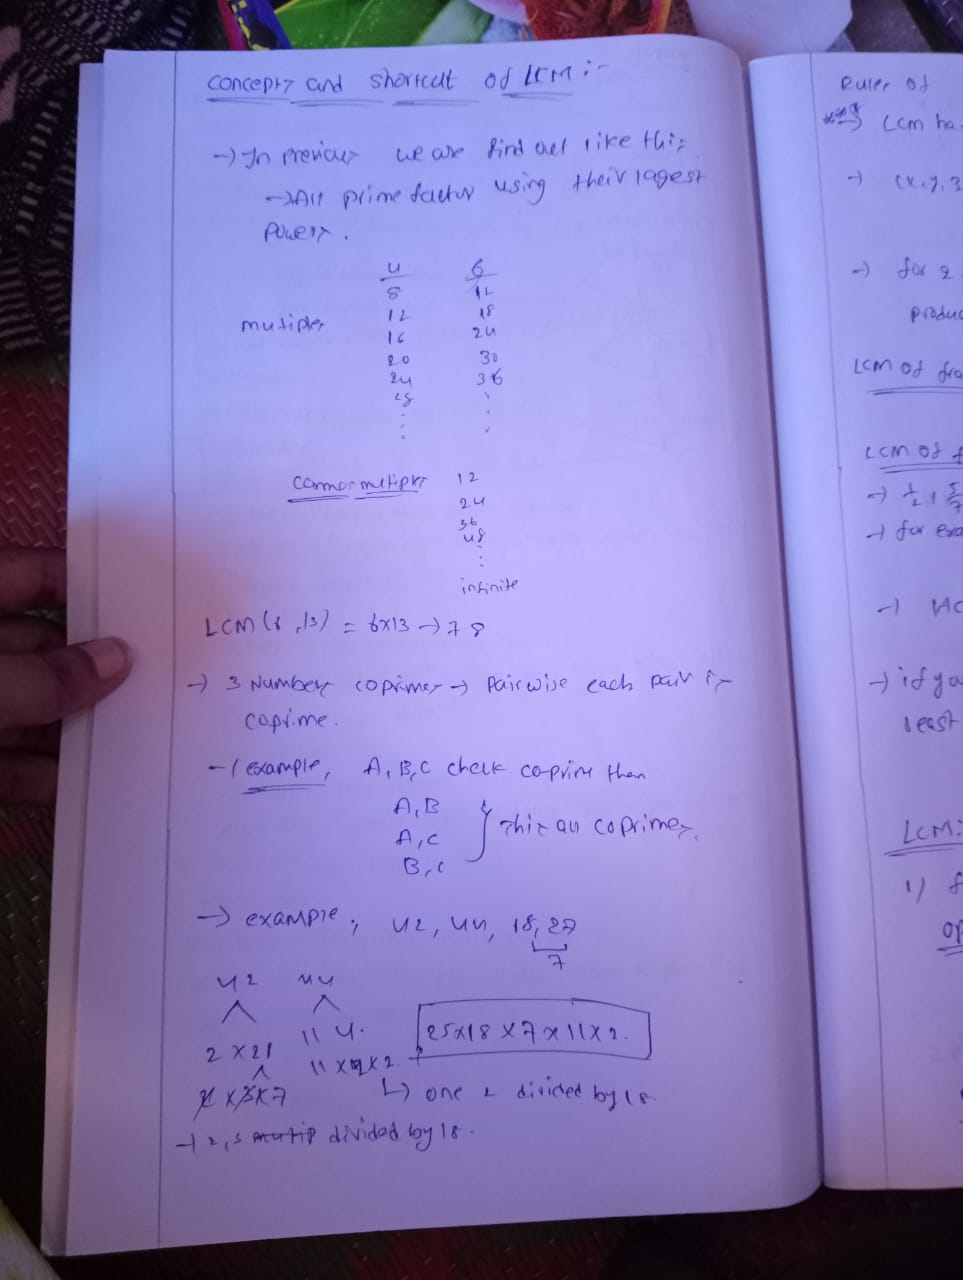 concepts and shortcut of LCM :-
-> In previous we are find out like this
-> All prime factor using their lagest
powers.
4 6
8 12
12 18
mutiples
16 24
20 30
24 36
28
common multiples 12
24
36
48
infinite
LCM (6, 13) = 6x13 -> 78
-> 3 Numbers coprimes -> Pairwise each pair is
coprime.
-> example, A, B, C check co-prime then
A, B
A, C
B, C
This all coprimes.
-> example, 42, 44, 18,
7
42 44
2 x 21 11 4.
25x18 x 7 x 11 x 2.
2 x 3 x 7 11 x 2 x 2.
-> one 2 divided by 18
-> 2, 3 divided by 18.
Rules of
LCM ha
-> (x, y, 3
-> for 2
produc
LCM of fra
LCM of f
-> 1/2, 5/7
-> for exa
-> HC
-> if yo
least
LCM:
1) f
op